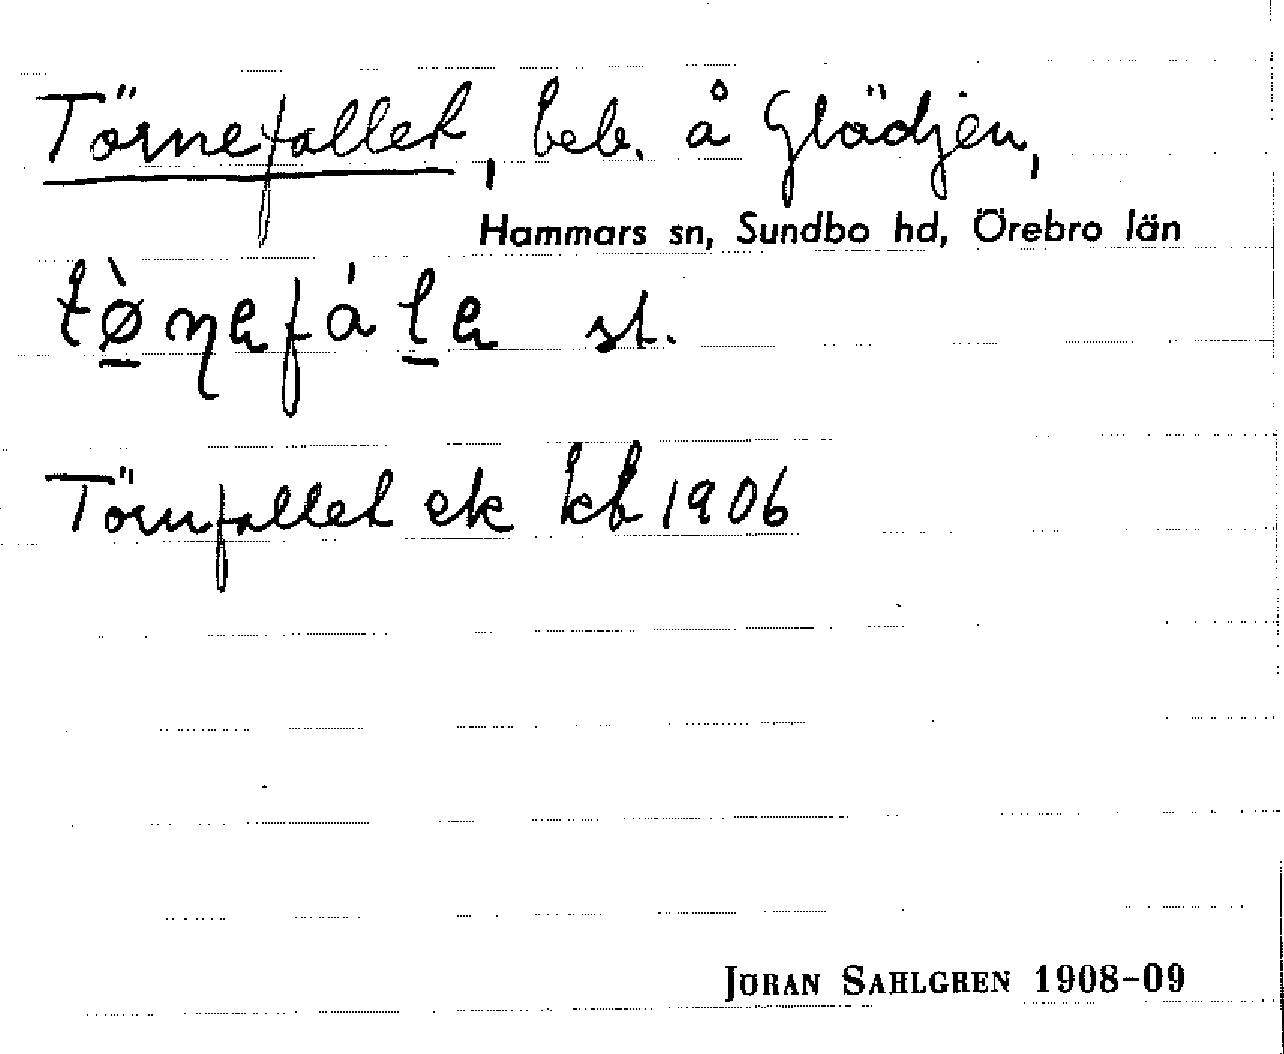 Törnefallet, beb. å Glädjen,
Hammars sn, Sundbo hd, Örebro län
tø̀ɳefále st.
Törnfallet ek kb 1906
JÖRAN SAHLGREN 1908-09